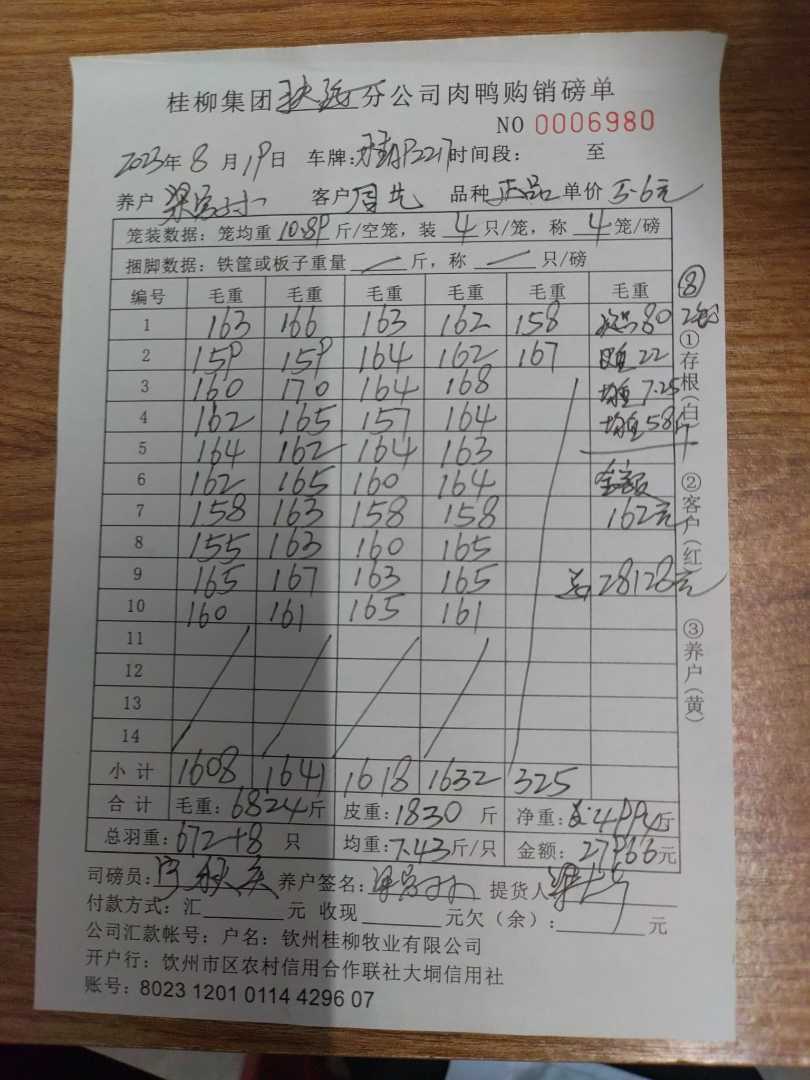 桂柳集团 分公司肉鸭购销磅单
NO 0006980
2023年 8月19日 车牌: 时间段: 至
养户 客户 周 品种 正品 单价 5.6元
笼装数据: 笼均重 10.89 斤/空笼, 装 4 只/笼, 称 4 笼/磅
捆脚数据: 铁筐或板子重量 斤, 称 只/磅
编号 毛重 毛重 毛重 毛重 毛重 毛重 ⑧
1 163 166 163 162 158 80 2
2 159 159 164 162 167 皮重 22
3 160 170 164 168 均重 7.25
4 162 165 157 164 58斤
5 164 162 164 163
6 162 165 160 164 金额
7 158 163 158 158 162元
8 155 163 160 165
9 165 167 163 165 总 28128元
10 160 161 165 161
11
12
13
14
小计 1608 1641 1618 1632 325
合计 毛重: 6824斤 皮重: 1830 斤 净重: 4994斤
总羽重: 672+8 只 均重: 7.43斤/只 金额: 27966元
司磅员: 养户签名: 提货人
付款方式: 汇 元 收现 元欠(余): 元
公司汇款帐号: 户名: 钦州桂柳牧业有限公司
开户行: 钦州市区农村信用合作联社大垌信用社
账号: 8023 1201 0114 4296 07
①存根(白)
②客户(红)
③养户(黄)